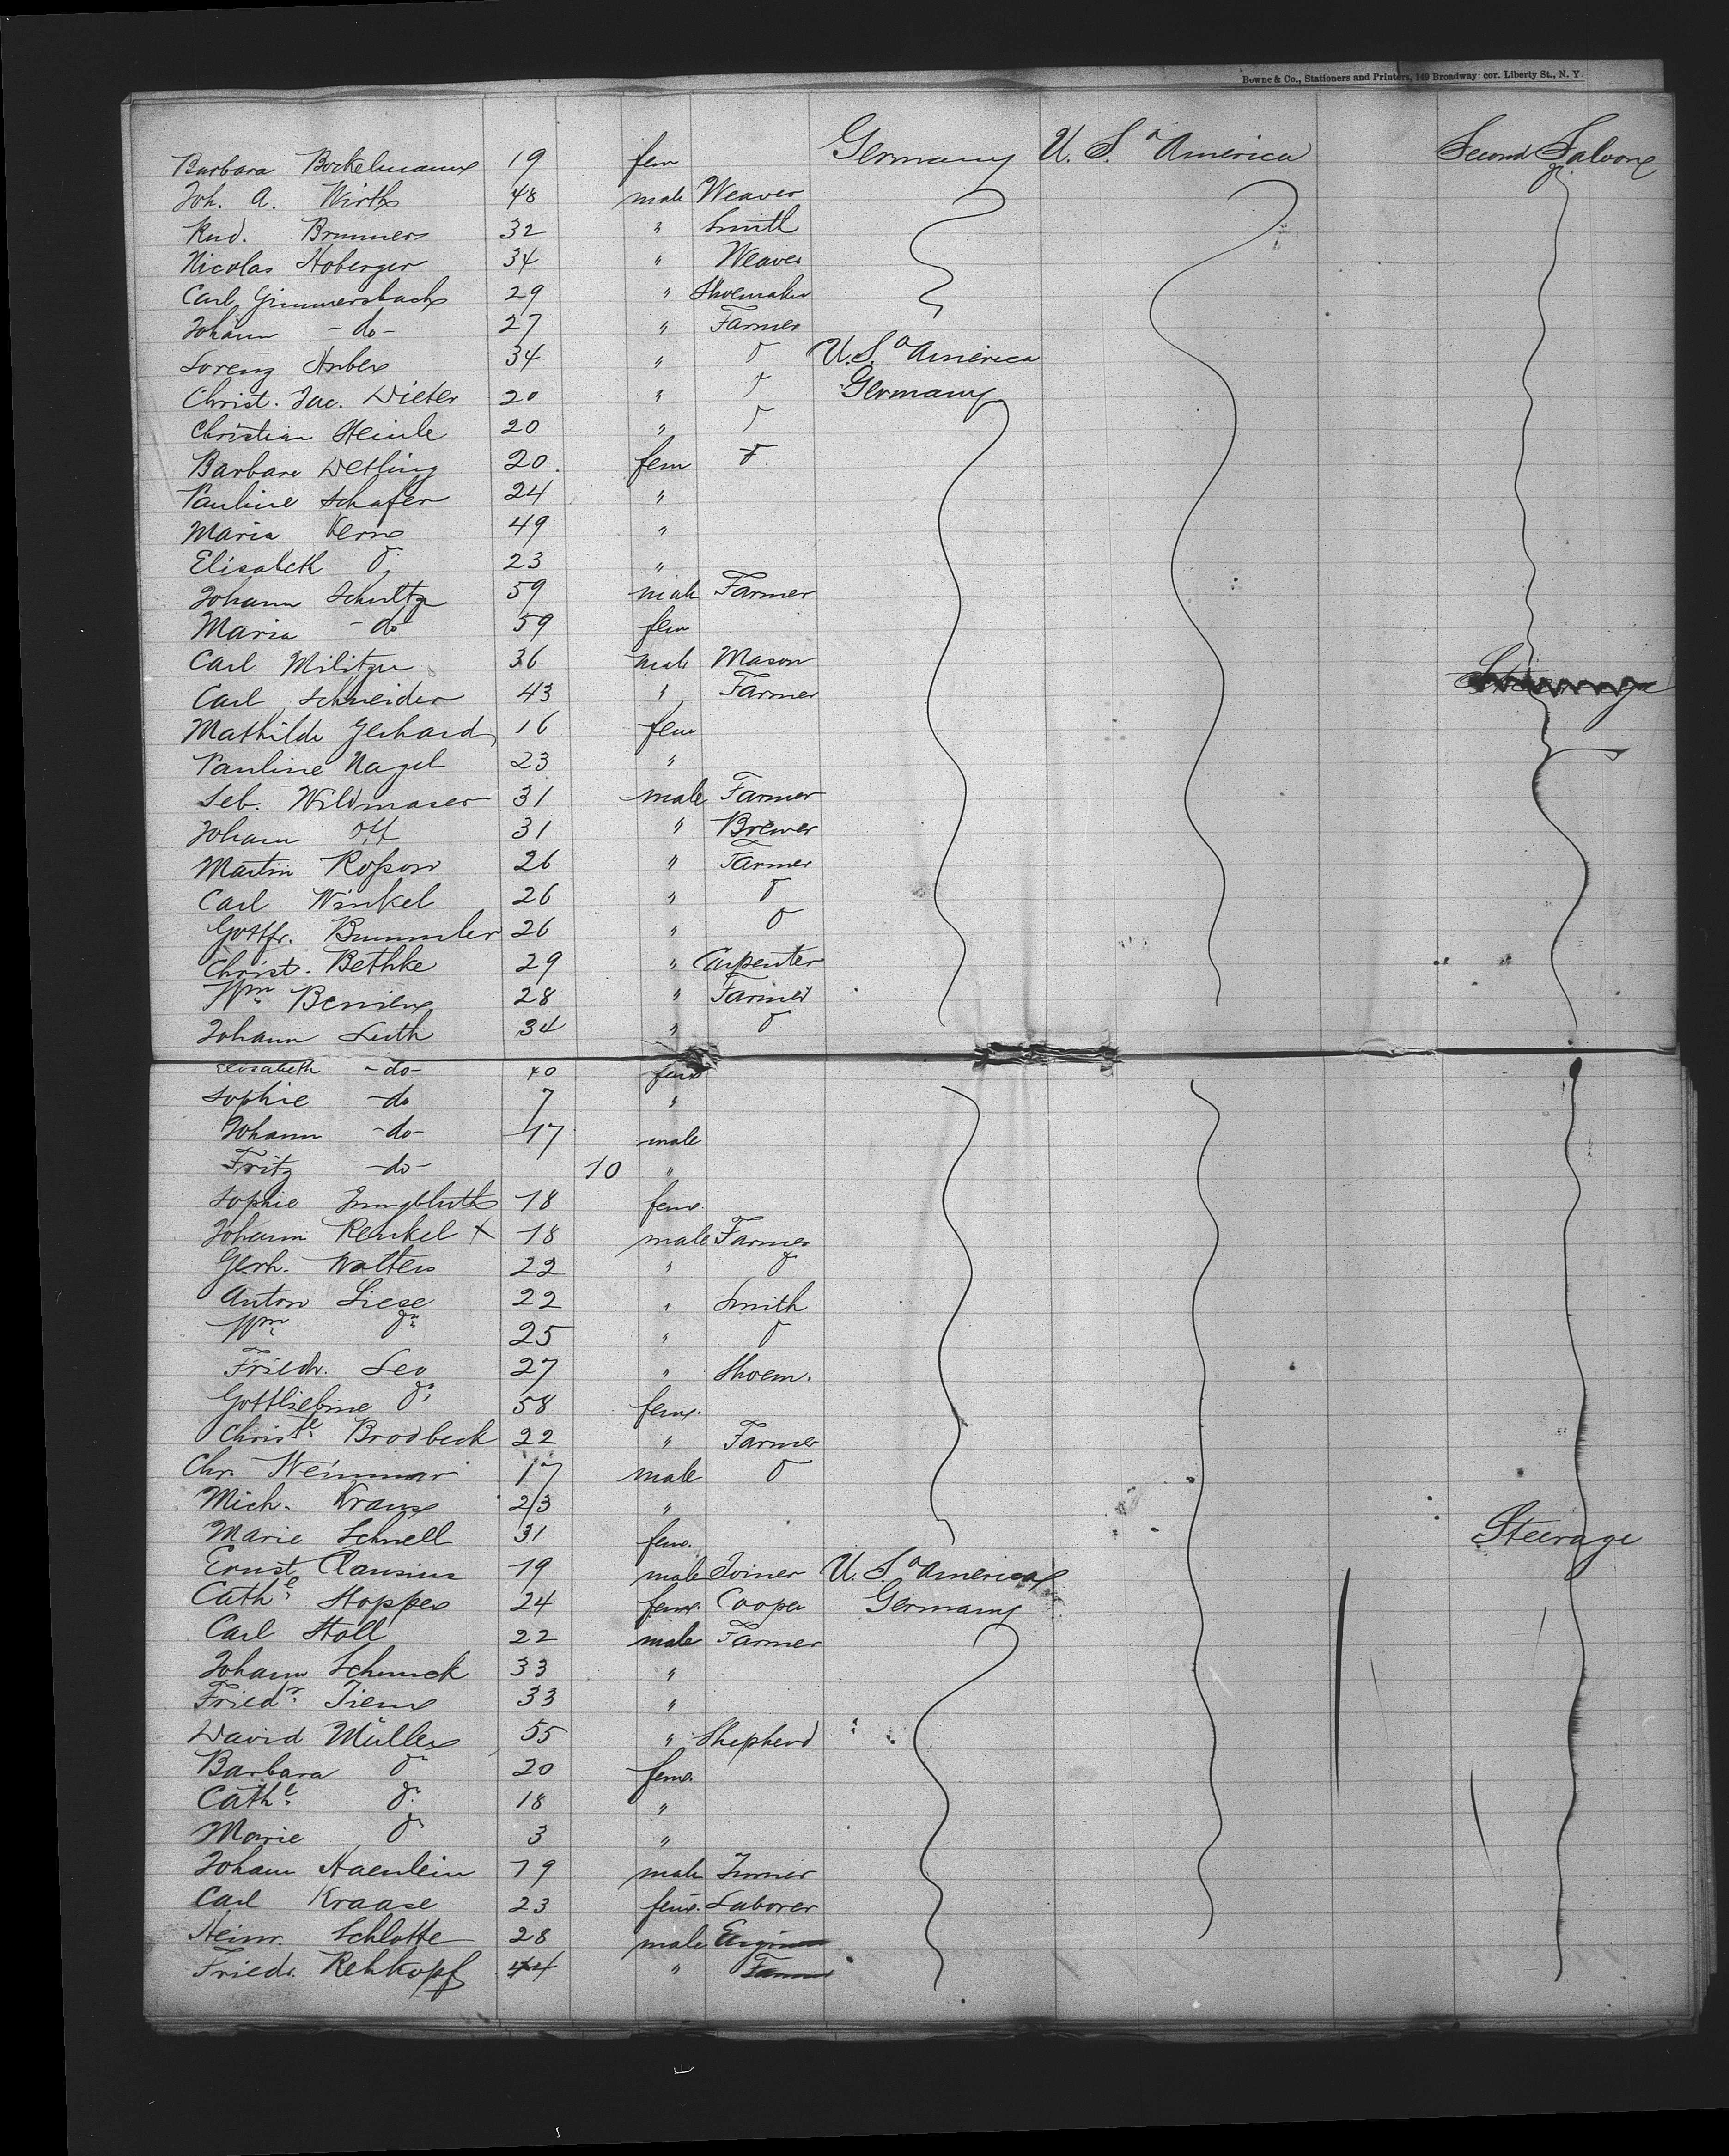 Bowne & Co., Stationers and Printers, 149 Broadway: cor. Liberty St., N. Y.
Barbara Bockelmann 19 fem Germany U. S. o America Second Saloon
Joh. A. Wirth 48 male Weaver
Rud. Brunner 32 " Smith
Nicolas Hoberger 34 " Weaver
Carl Gimmersbach 29 " Shoemaker
Johann - do - 27 " Farmer
Lorenz Huber 34 " do U. S. o America
Christ. Jac. Dieter 20 " do Germany
Christian Heinle 20 " do
Barbara Detling 20 fem
Pauline Schafer 24 "
Maria Kern 49 "
Elisabeth do 23 "
Johann Schultz 59 male Farmer
Maria - do 59 fem
Carl Militzer 36 male Mason
Carl Schneider 43 " Farmer
Mathilde Gerhard 16 fem
Pauline Nagel 23 "
Seb. Wildmaser 31 male Farmer
Johann Ott 31 " Brewer
Martin Roßow 26 " Farmer
Carl Winkel 26 " do
Gottfr. Bummler 26 " do
Christ. Bethke 29 " Carpenter
Wm Berrien 28 " Farmer
Johann Luth 34 " do
Elisabeth - do - 40 fem
Sophie - do 7 "
Johann - do - 17 male
Fritz - do - 10 "
Sophie Jungbluth 18 fem.
Johann Renkel x 18 male Farmer
Gerh. Wolters 22 " do
Anton Liese 22 " Smith
Wm do 25 " do
Friedr. Leo 27 " Shoem.
Gottliebine do 58 fem.
Christe Brodbeck 22 " Farmer
Chr. Weimmar 17 male do
Mich. Kraus 23 "
Marie Schnell 31 fem. Steerage
Ernst Clausius 19 male Joiner U. S. o America
Cathe Hopper 24 fem. Cooper Germany
Carl Stoll 22 male Farmer
Johann Schmuck 33 "
Friedr. Tiem 33 "
David Müller 55 " Shepherd
Barbara do 20 fem.
Cathe do 18 "
Marie do 3 "
Johann Haenlein 19 male Turner
Carl Kraase 23 fem. Laborer
Heinr. Schlotte 28 male
Friedr. Rehkopf 44 " Farmer